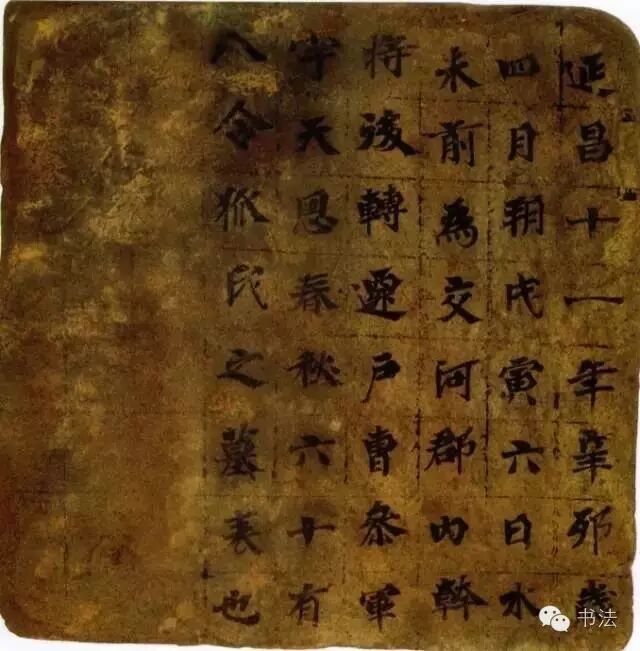 延昌十一年辛卯歲
四月朔戊寅六日水
未前為交河郡内幹
將後轉遷户曺叅軍
字天恩春秋六十有
八令狐氏之墓表也
书法